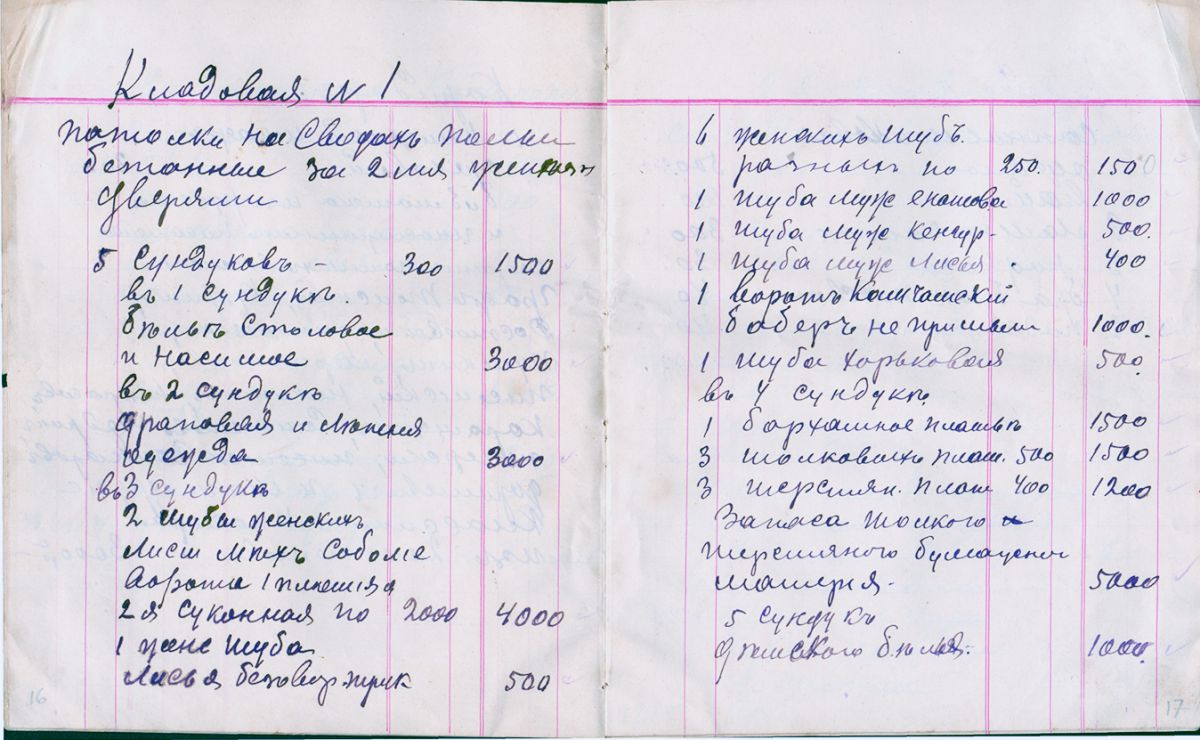 Кладовая № 1
патолки на Сводахъ полы
бетонные за 2мя
Дверями
5 Сундуковъ - 300 1500
въ 1 сундукѣ.
бѣльѣ Столовое
и Насилное 3000
въ 2 сундукѣ
драповая и
адежда 3000
въ 3 сундукѣ
2 шубы женскихъ
Лисьи Мѣхъ Соболье
вороты 1 плюшевая
2я Суконная по 2000 4000
1 женс шуба
Лисья 500
16
6 женскихъ шубъ.
разныхъ по 250. 1500
1 шуба муж енотова 1000
1 шуба муж Кенгур- 500.
1 шуба муж Лисья . 400
1 воротъ Камчатский
боберъ не пришитый 1000.
1 шуба хорьковая 500.
въ 4 сундукѣ.
1 бархатное платье 1500
3 шолковыхъ плат. 500 1500
3 шерстян. плат 400 1200
Запаса шолкого и
шерстяного бумажной
материя. 5000
5 сундукъ
дамского бѣлья. 1000.
17